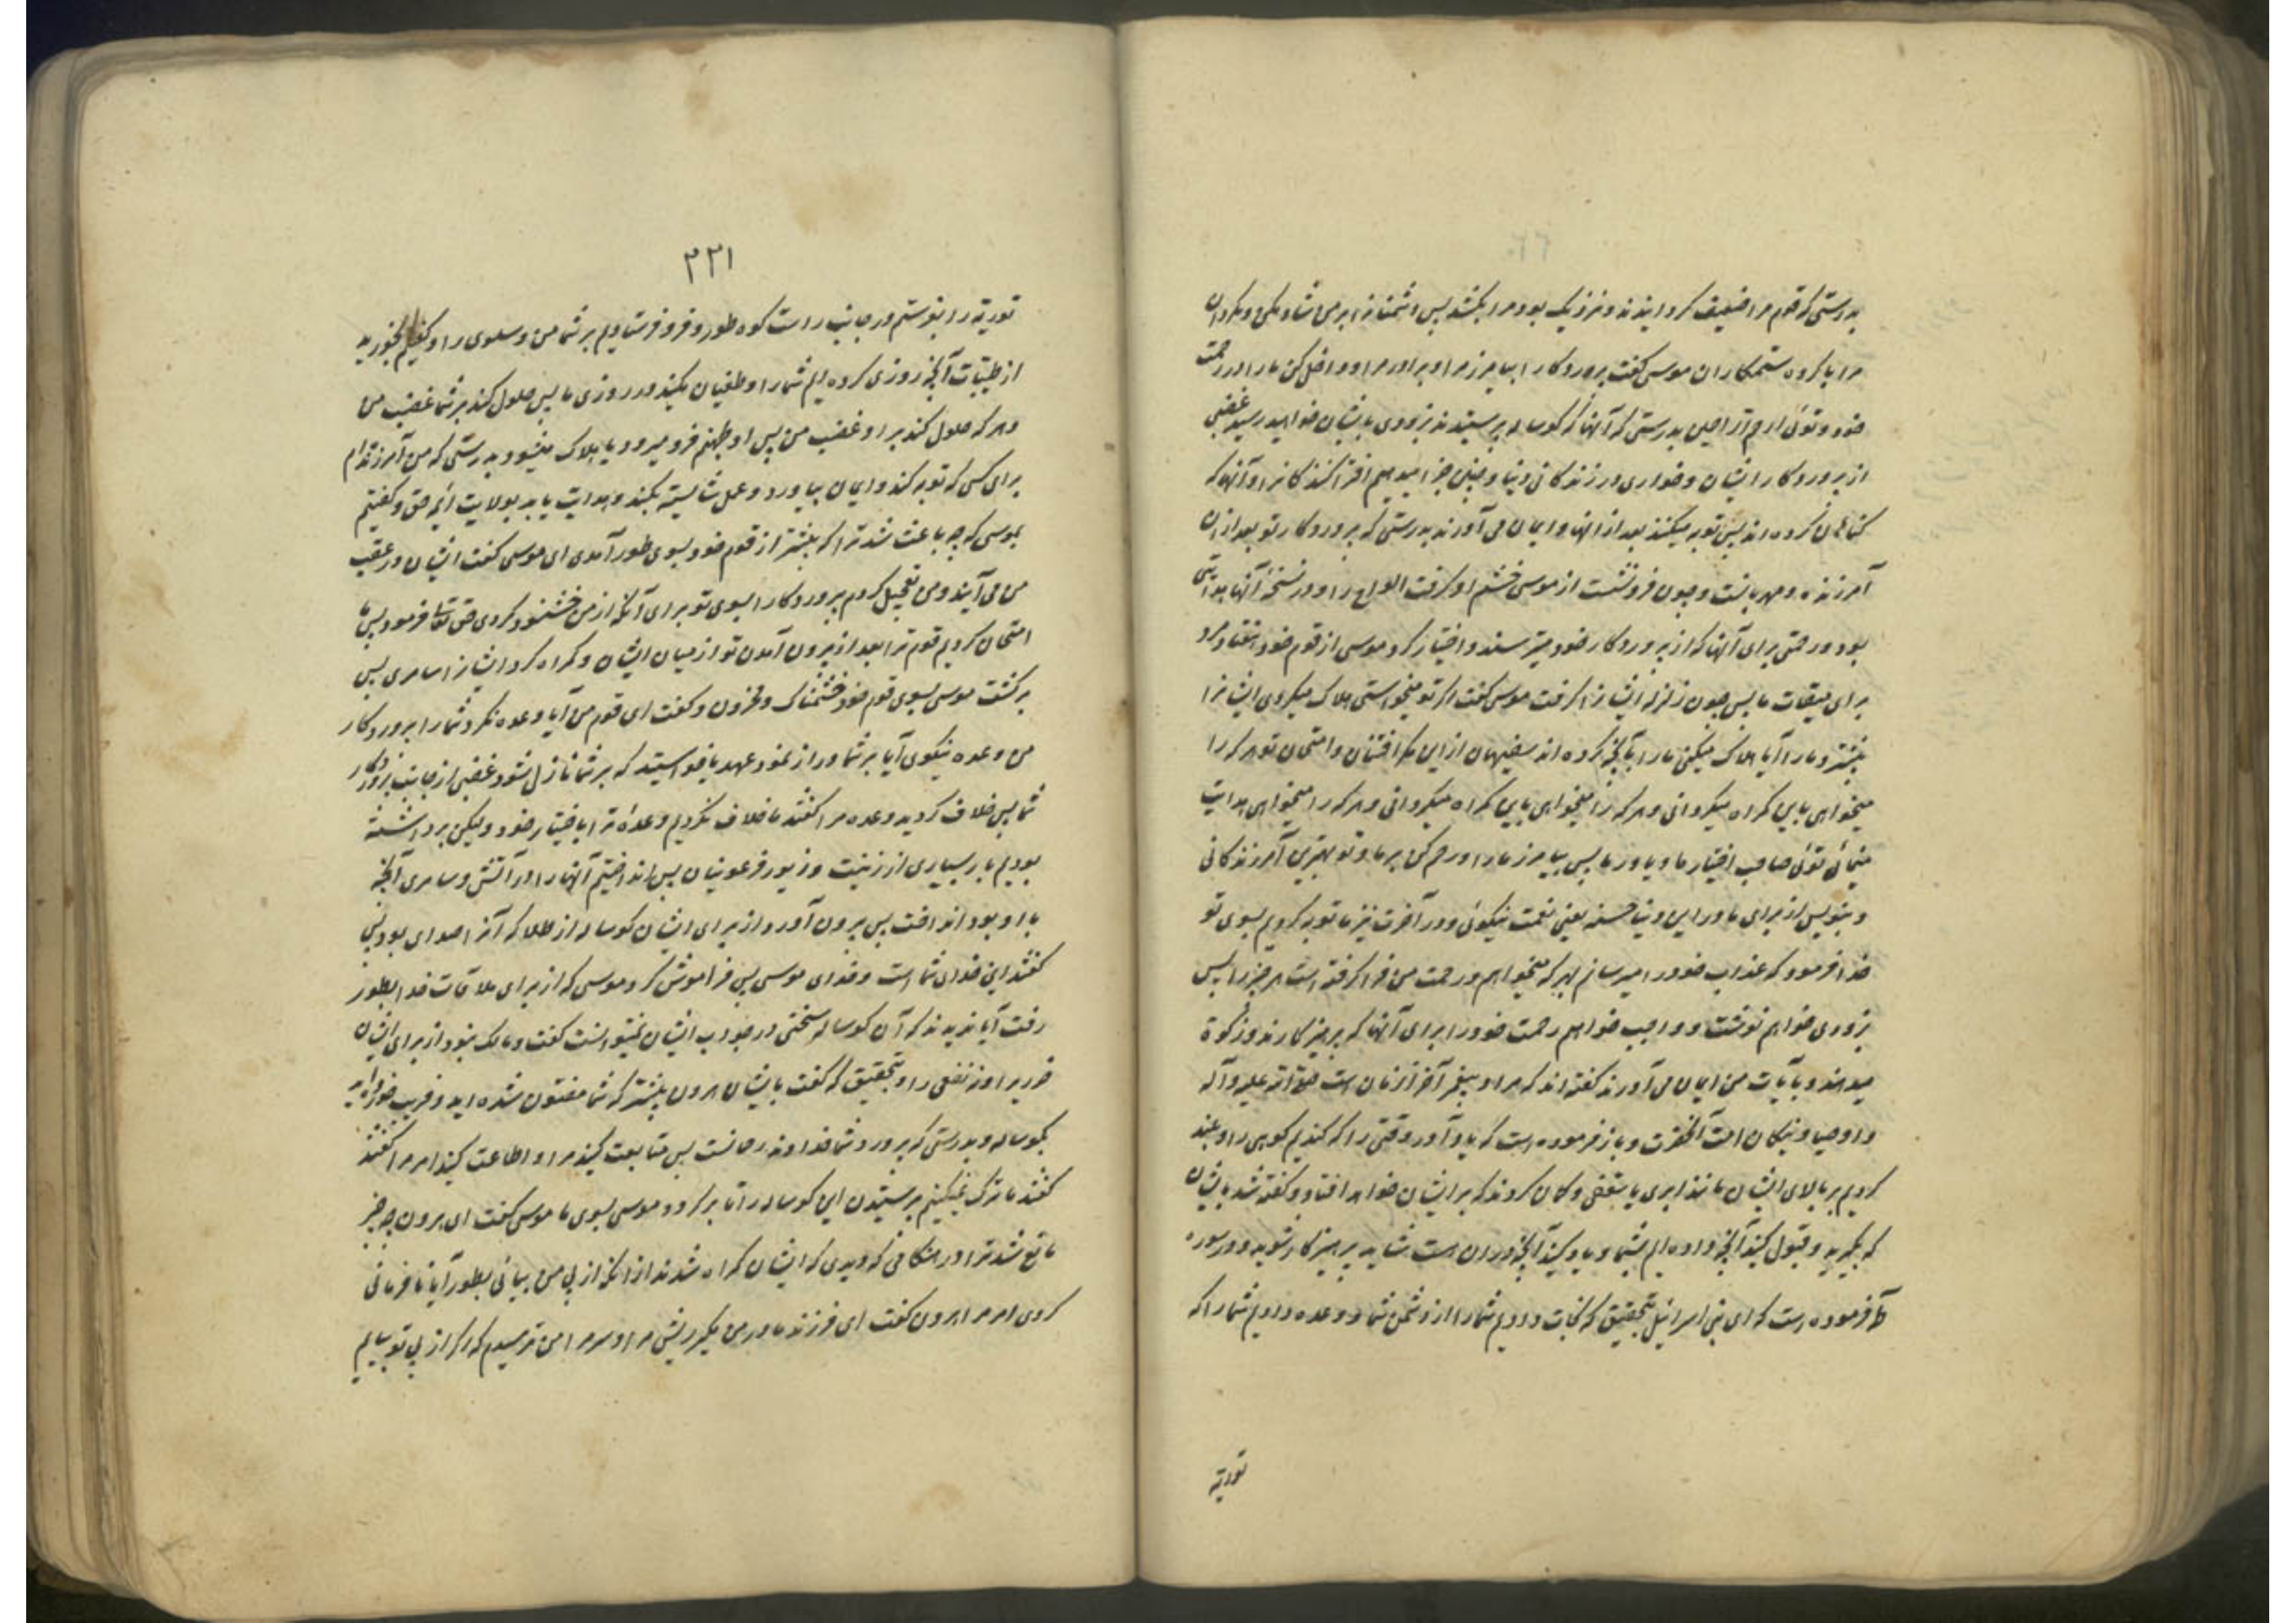 بدرستی که قوم مرا ضعیف کردانیدند و نزدیک بود مرا بکشند پس دشمنانرا بر من شاد مکن و مکردان
مرا با کروه ستمکاران موسی کفت پروردکارا بیامرز مرا و برادر مرا و داخل کن ما را در رحمت
خود و توئی ارحم الراحمین بدرستی که آنها که کوساله پرستیدند بزودی بایشان خواهد رسید غضبی
از پروردکار ایشان و خواری در زندکانی دنیا و چنین جزا میدهیم افترا کنندکانرا و آنها که
کناهان کرده اند پس توبه میکنند بعد از انها و ایمان می آورند بدرستی که پروردکار تو بعد از ان
آمرزنده و مهربانست و چون فرو نشست از موسی خشم او کرفت الواح را و در نسخه آنها هدایتی
بود و رحمتی برای آنها که از پروردکار خود میترسند و اختیار کرد موسی از قوم خود هفتاد مرد
برای میقات ما پس چون زلزله ایشانرا کرفت موسی کفت اکر تو میخواستی هلاک میکردی ایشانرا
پیشتر و مارا آیا هلاک میکنی ما را بآنچه کرده اند سفیهان از این مکر افتتان و امتحان تو هر که را
میخواهی باین کمراه میکردانی و هر که را میخواهی باین کمراه میکردانی و هر که را میخواهی هدایت
مینمائی توئی صاحب اختیار ما و یاور ما پس بیامرز ما را و رحم کن بر ما و تو بهترین آمرزندکانی
و بنویس از برای ما در این دنیا حسنه یعنی نعمت نیکوئی و در آخرت نیز ما توبه کردیم بسوی تو
خدا فرمود که عذاب خود را میرسانم بهر که میخواهم و رحمت من فرا کرفته است هر چیز را پس
بزودی خواهم نوشت و واجب خواهم رحمت خود را برای آنها که پرهیزکارند و زکوة
میدهند و بآیات من ایمان می آورند کفته اند که مراد پیغمبر آخر الزمان است صلی الله علیه و آله
و اوصیا و نیکان امت آنحضرت و باز فرموده است که یاد آور وقتی را که کندیم کوهی را و بلند
کردیم بر بالای ایشان مانند ابری یا سقفی و کمان کردند که بر ایشان خواهد افتاد و کفته شد بایشان
که بکیرید و قبول کنید آنچه داده ایم بشما و یاد کنید آنچه در ان هست شاید پرهیزکار شوید و در سوره
طه فرموده است که ای بنی اسرائیل بتحقیق که نجات دادیم شما را از دشمن شما و وعده دادیم شما را که
توریة
۲۲۱
توریة را بنوستم در جانب راست کوه طور و فرو فرستادیم بر شما من و سلوی را و کفتیم بخورید
از طیّبات آنچه روزی کرده ایم شما را و طغیان مکنید در روزی ما پس حلول کند بر شما غضب من
و هر که حلول کند بر او غضب من پس او بجهنم فرو میرود یا هلاک میشود و بدرستی که من آمرزنده ام
برای کسی که توبه کند و ایمان بیاورد و عمل شایسته بکند و هدایت یابد بولایت ائمه حق و کفتیم
بموسی که چه باعث شد ترا که پیشتر از قوم خود بسوی طور آمدی ای موسی کفت ایشان در عقب
من می آیند و من تعجیل کردم پروردکارا بسوی تو برای آنکه از من خشنود کردی حق تعالی فرمود پس ما
امتحان کردیم قوم ترا بعد از بیرون آمدن تو از میان ایشان و کمراه کرد ایشانرا سامری پس
برکشت موسی بسوی قوم خود خشمناک و محزون و کفت ای قوم من آیا وعده نکرد شما را پروردکار
من وعده نیکوی آیا بر شما دراز نمود عهد یا خواستید که بر شما نازل شود غضبی از جانب پروردکار
شما پس خلاف کردید وعده مرا کفتند ما خلاف نکردیم وعدهٔ ترا باختیار خود ولیکن برداشته
بودیم بار بسیاری از زینت و زیور فرعونیان پس انداختیم آنها را در آتش و سامری آنچه
با او بود انداخت پس بیرون آورد از برای ایشان کوساله از طلا که آنرا صدای بود پس
کفتند این خدای شما است و خدای موسی پس فراموش کرد موسی که از برای ملاقات خدا بطور
رفت آیا ندیدند که آن کوساله سخنی در جواب ایشان نمیتوانست کفت و مالک نبود از برای ایشان
ضرریرا و نه نفعی را و بتحقیق که کفت بایشان هرون پیشتر که شما مفتون شده اید و فریب خورده اید
بکوساله و بدرستی که پروردشما خداوند رحمانست پس متابعت کنید مرا و اطاعت کنید امر مرا کفتند
کفتند ما ترک نمیکنیم پرستیدن این کوساله را تا برکردد موسی بسوی ما موسی کفت ای هرون چه چیز
مانع شد ترا در هنکامی که دیدی که ایشان کمراه شدند از انکه از پی من بیائی بطور آیا نافرمانی
کردی امر مرا هرون کفت ای فرزند مادر من مکیر ریش مرا و سر مرا من ترسیدم که اکر از پی تو بیایم